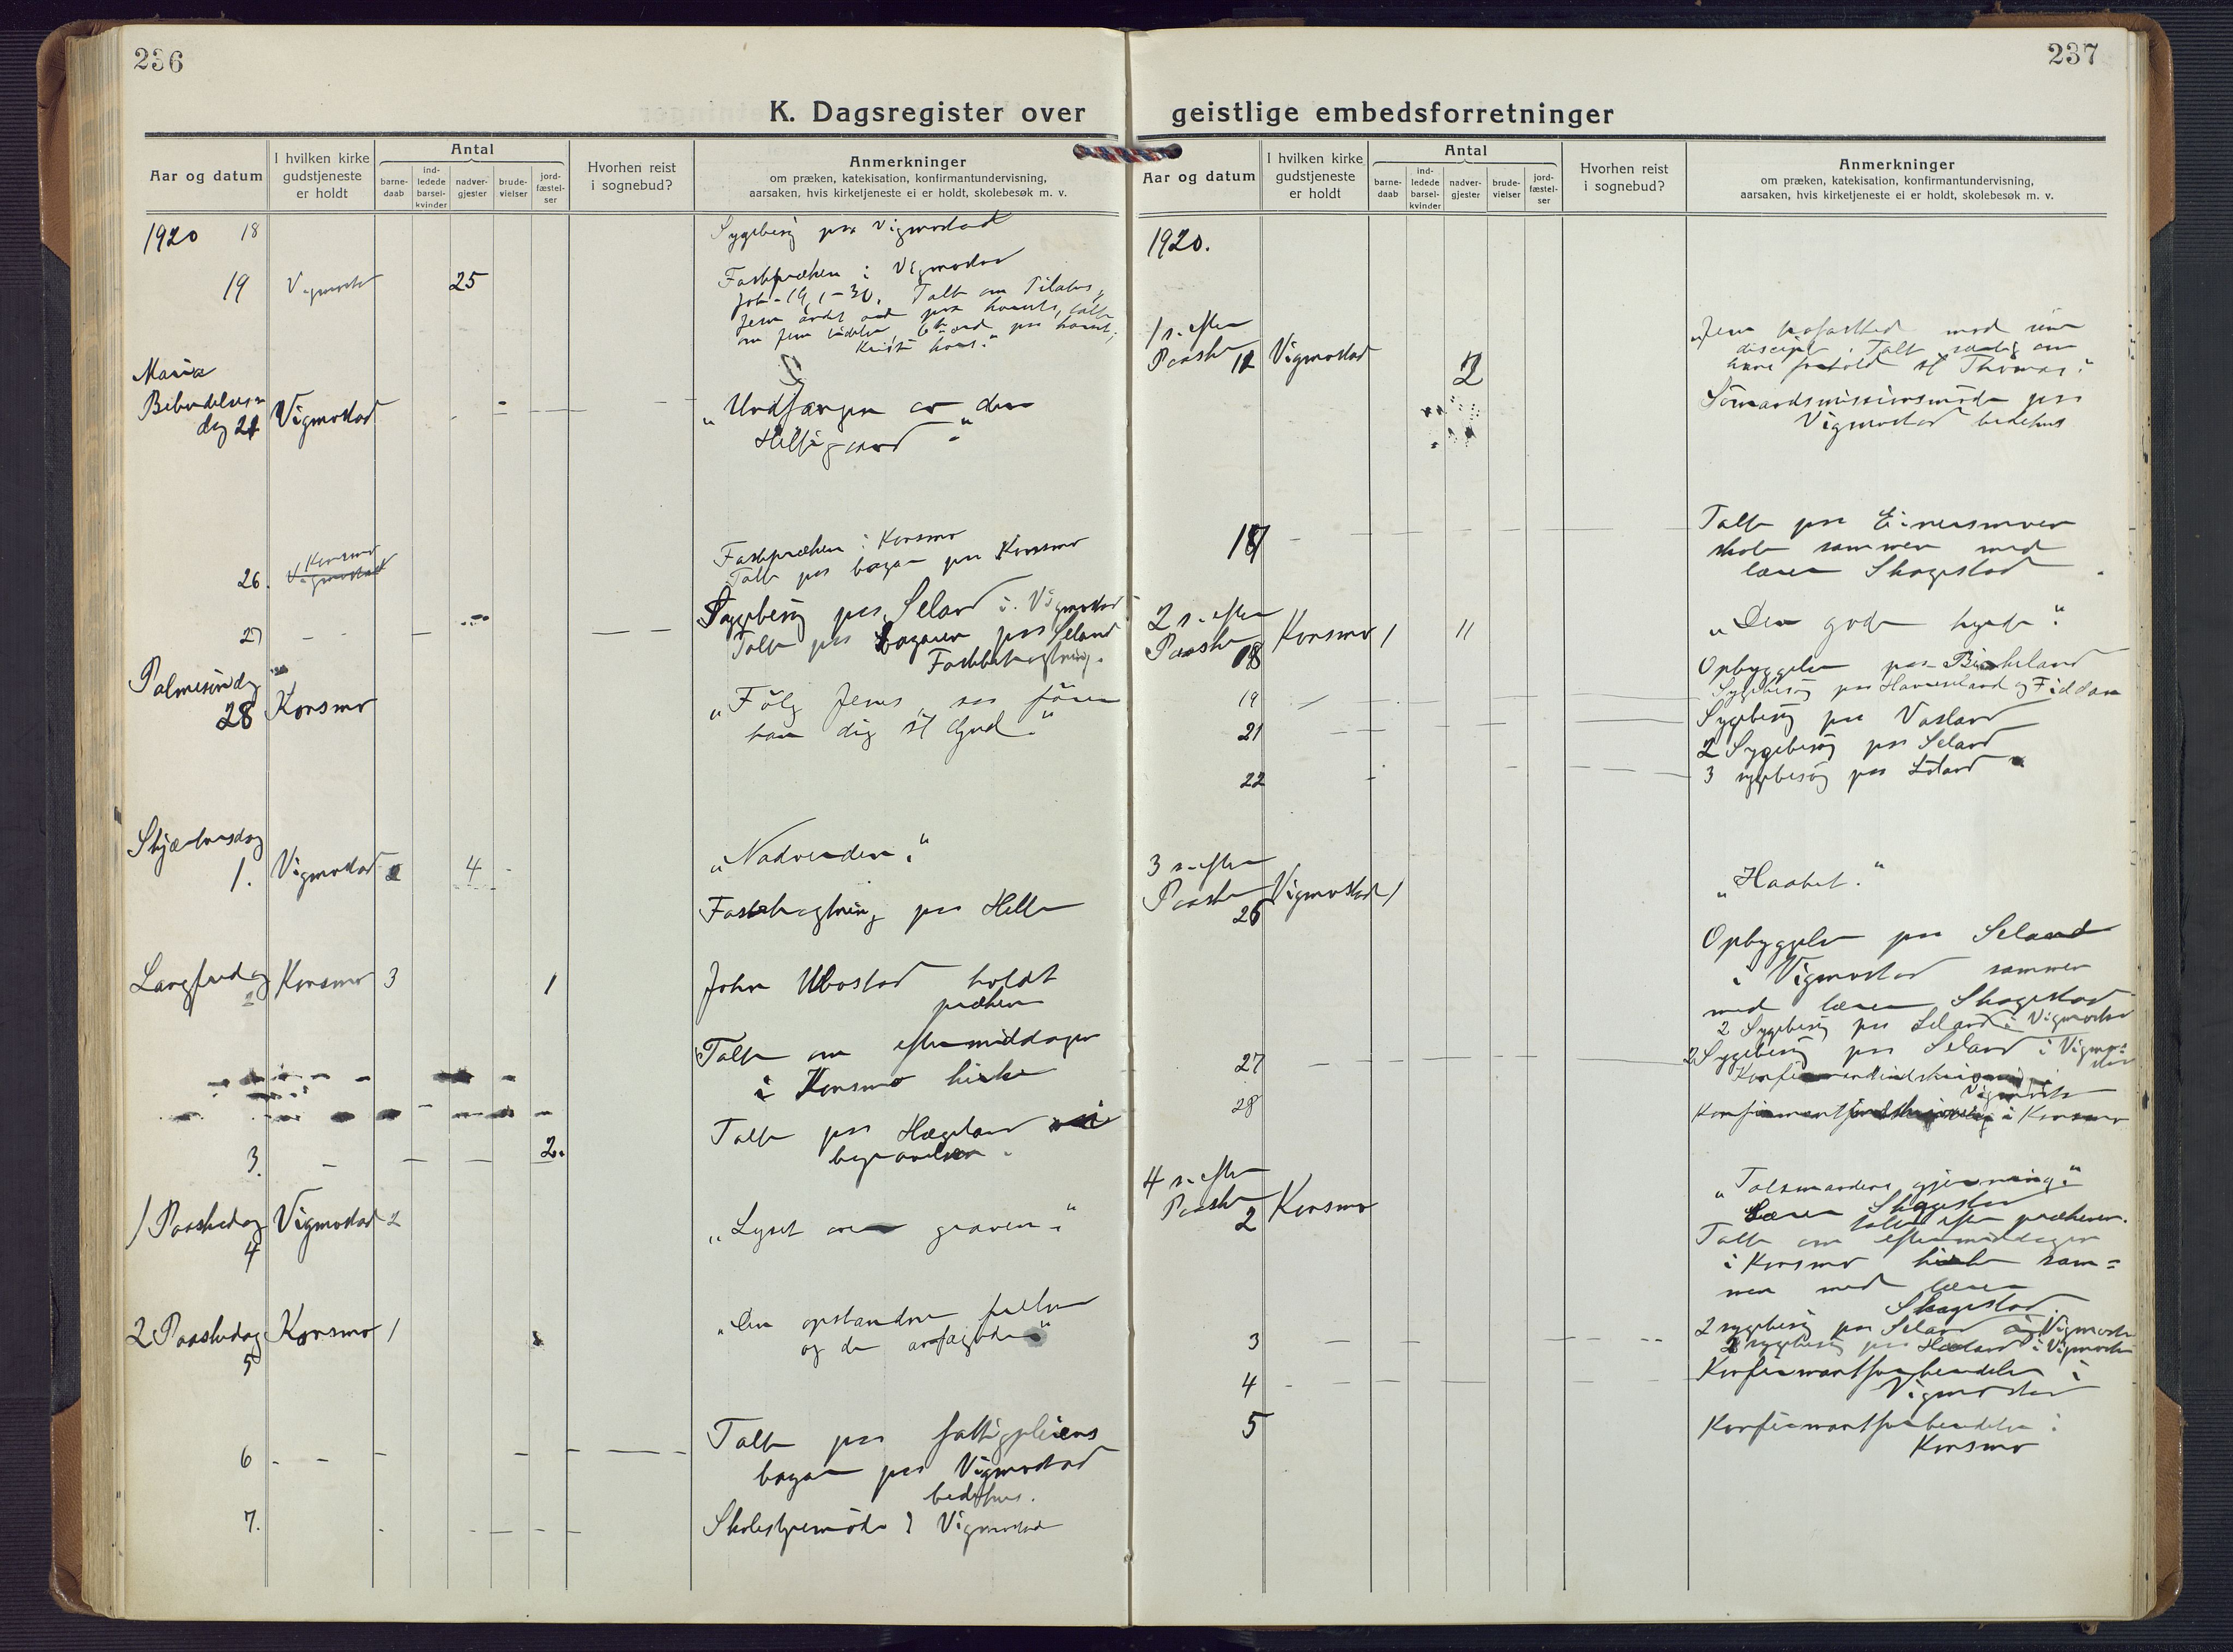 236
K. Dagsregister over
Aar og datum
I hvilken kirke
gudstjeneste
er holdt
Antal
barne-
daab
ind-
ledede
barsel-
kvinder
nadver-
gjester
brude-
vielser
jord-
fæstel-
ser
Hvorhen reist
i sognebud?
Anmerkninger
om præken, katekisation, konfirmantundervisning,
aarsaken, hvis kirketjeneste ei er holdt, skolebesøk m. v.
1920 18 Sygebesøg paa Vigmostad
19 Vigmostad 25 Fastepræken i Vigmostad
Joh. 19, 1-30. Talte om Pilatus,
Kristi kors."
Mariæ
Bebudelses
dag 21 Vigmostad "Undfangen av den
Hellig aand"
26. Korsmo Vigmostad Fastepræken i Korsmo
Talte paa basar paa Korsmo
27 Sygebesøg paa Seland i Vigmostad
Talte paa basaren paa Seland
Fastebetragtning.
Palmesøndag
28 Korsmo "Følg Jesus, saa fører
han dig til Gud."
Skjærtorsdag
1. Vigmostad 2 4 "Nadverden."
Fastebetragtning paa Helle
Langfredag
2 Korsmo 3 1 John Ubostad holdt
præken
Talte om eftermiddagen
i Korsmo kirke
3. 2. Talte paa Hægeland i
begravelse.
1 Paaskedag Vigmostad 2
4 "Lyset over graven."
2 Paaskedag Korsmo 1
5 "Den opstandne frelser
og de
6 Talte paa fattigpleiens
basar paa Vigmostad
bedehus.
7. Skolestyremøde i Vigmostad
237
geistlige embedsforretninger
Aar og datum
I hvilken kirke
gudstjeneste
er holdt
Antal
barne-
daab
ind-
ledede
barsel-
kvinder
nadver-
gjester
brude-
vielser
jord-
fæstel-
ser
Hvorhen reist
i sognebud?
Anmerkninger
om præken, katekisation, konfirmantundervisning,
aarsaken, hvis kirketjeneste ei er holdt, skolebesøk m. v.
1920.
1 s. efter
Paaske 11 Vigmostad 2 "Jesu trofasthed mod sine
disciple. Talte særlig om
hans forhold til Thomas."
Sømandsmissionsmøde paa
Vigmostad bedehus
17 Talte paa Einersmoen
skole sammen med
lærer Skagestad
2 s. efter
Paaske 18 Korsmo 1 11 "Den gode hyrde."
Opbyggelse paa Birkeland
Sygebesøg paa Haveraland og Fiddan
19 Sygebesøg paa Vasland
21 2 Sygebesøg paa Seland
22 3 sygebesøg paa Eiland
3 s. efter
Paaske
25 Vigmostad 1 "Haabet."
Opbyggelse paa Seland
i Vigmostad sammen
med lærer Skagestad
2 Sygebesøg paa Seland i Vigmostad
27 2 Sygebesøg paa Seland i Vigmo-
stad
Konfirmandindskrivning i
Vigmostad
28 Konfirmantindskrivning i Korsmo
4 s. efter
Paaske
2 Korsmo "Talsmandens gjerning."
Lærer Skagestad
talte efter prækenen.
Talte om eftermiddagen
i Korsmo kirke sam=
men med lærer
Skagestad.
3 2 sygebesøg paa Seland i Vigmostad
2 sygebesøg paa Høiland i Vigmostad
4 Konfirmantforberedelse i
Vigmostad
5 Konfirmantforberedelse i
Korsmo